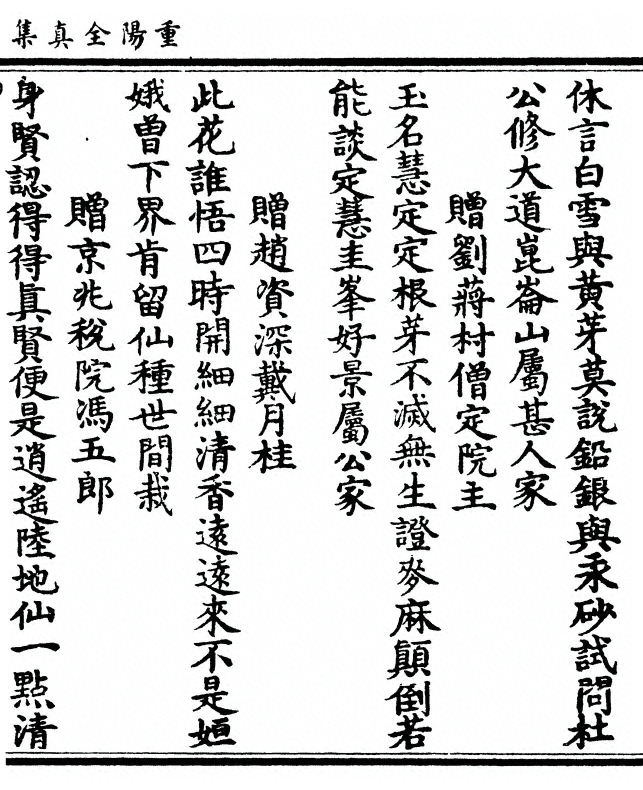 重陽全真集
休言白雪與黃芽莫說鉛銀與汞砂試問杜
公修大道崑崙山屬甚人家
贈劉蔣村僧定院主
玉名慧定定根芽不滅無生證麥麻顛倒若
能談定慧圭峯好景屬公家
贈趙資深戴月桂
此花誰悟四時開細細清香遠遠來不是姮
娥曾下界肯留仙種世間栽
贈京兆稅院馮五郎
身賢認得得眞賢便是逍遙陸地仙一點清